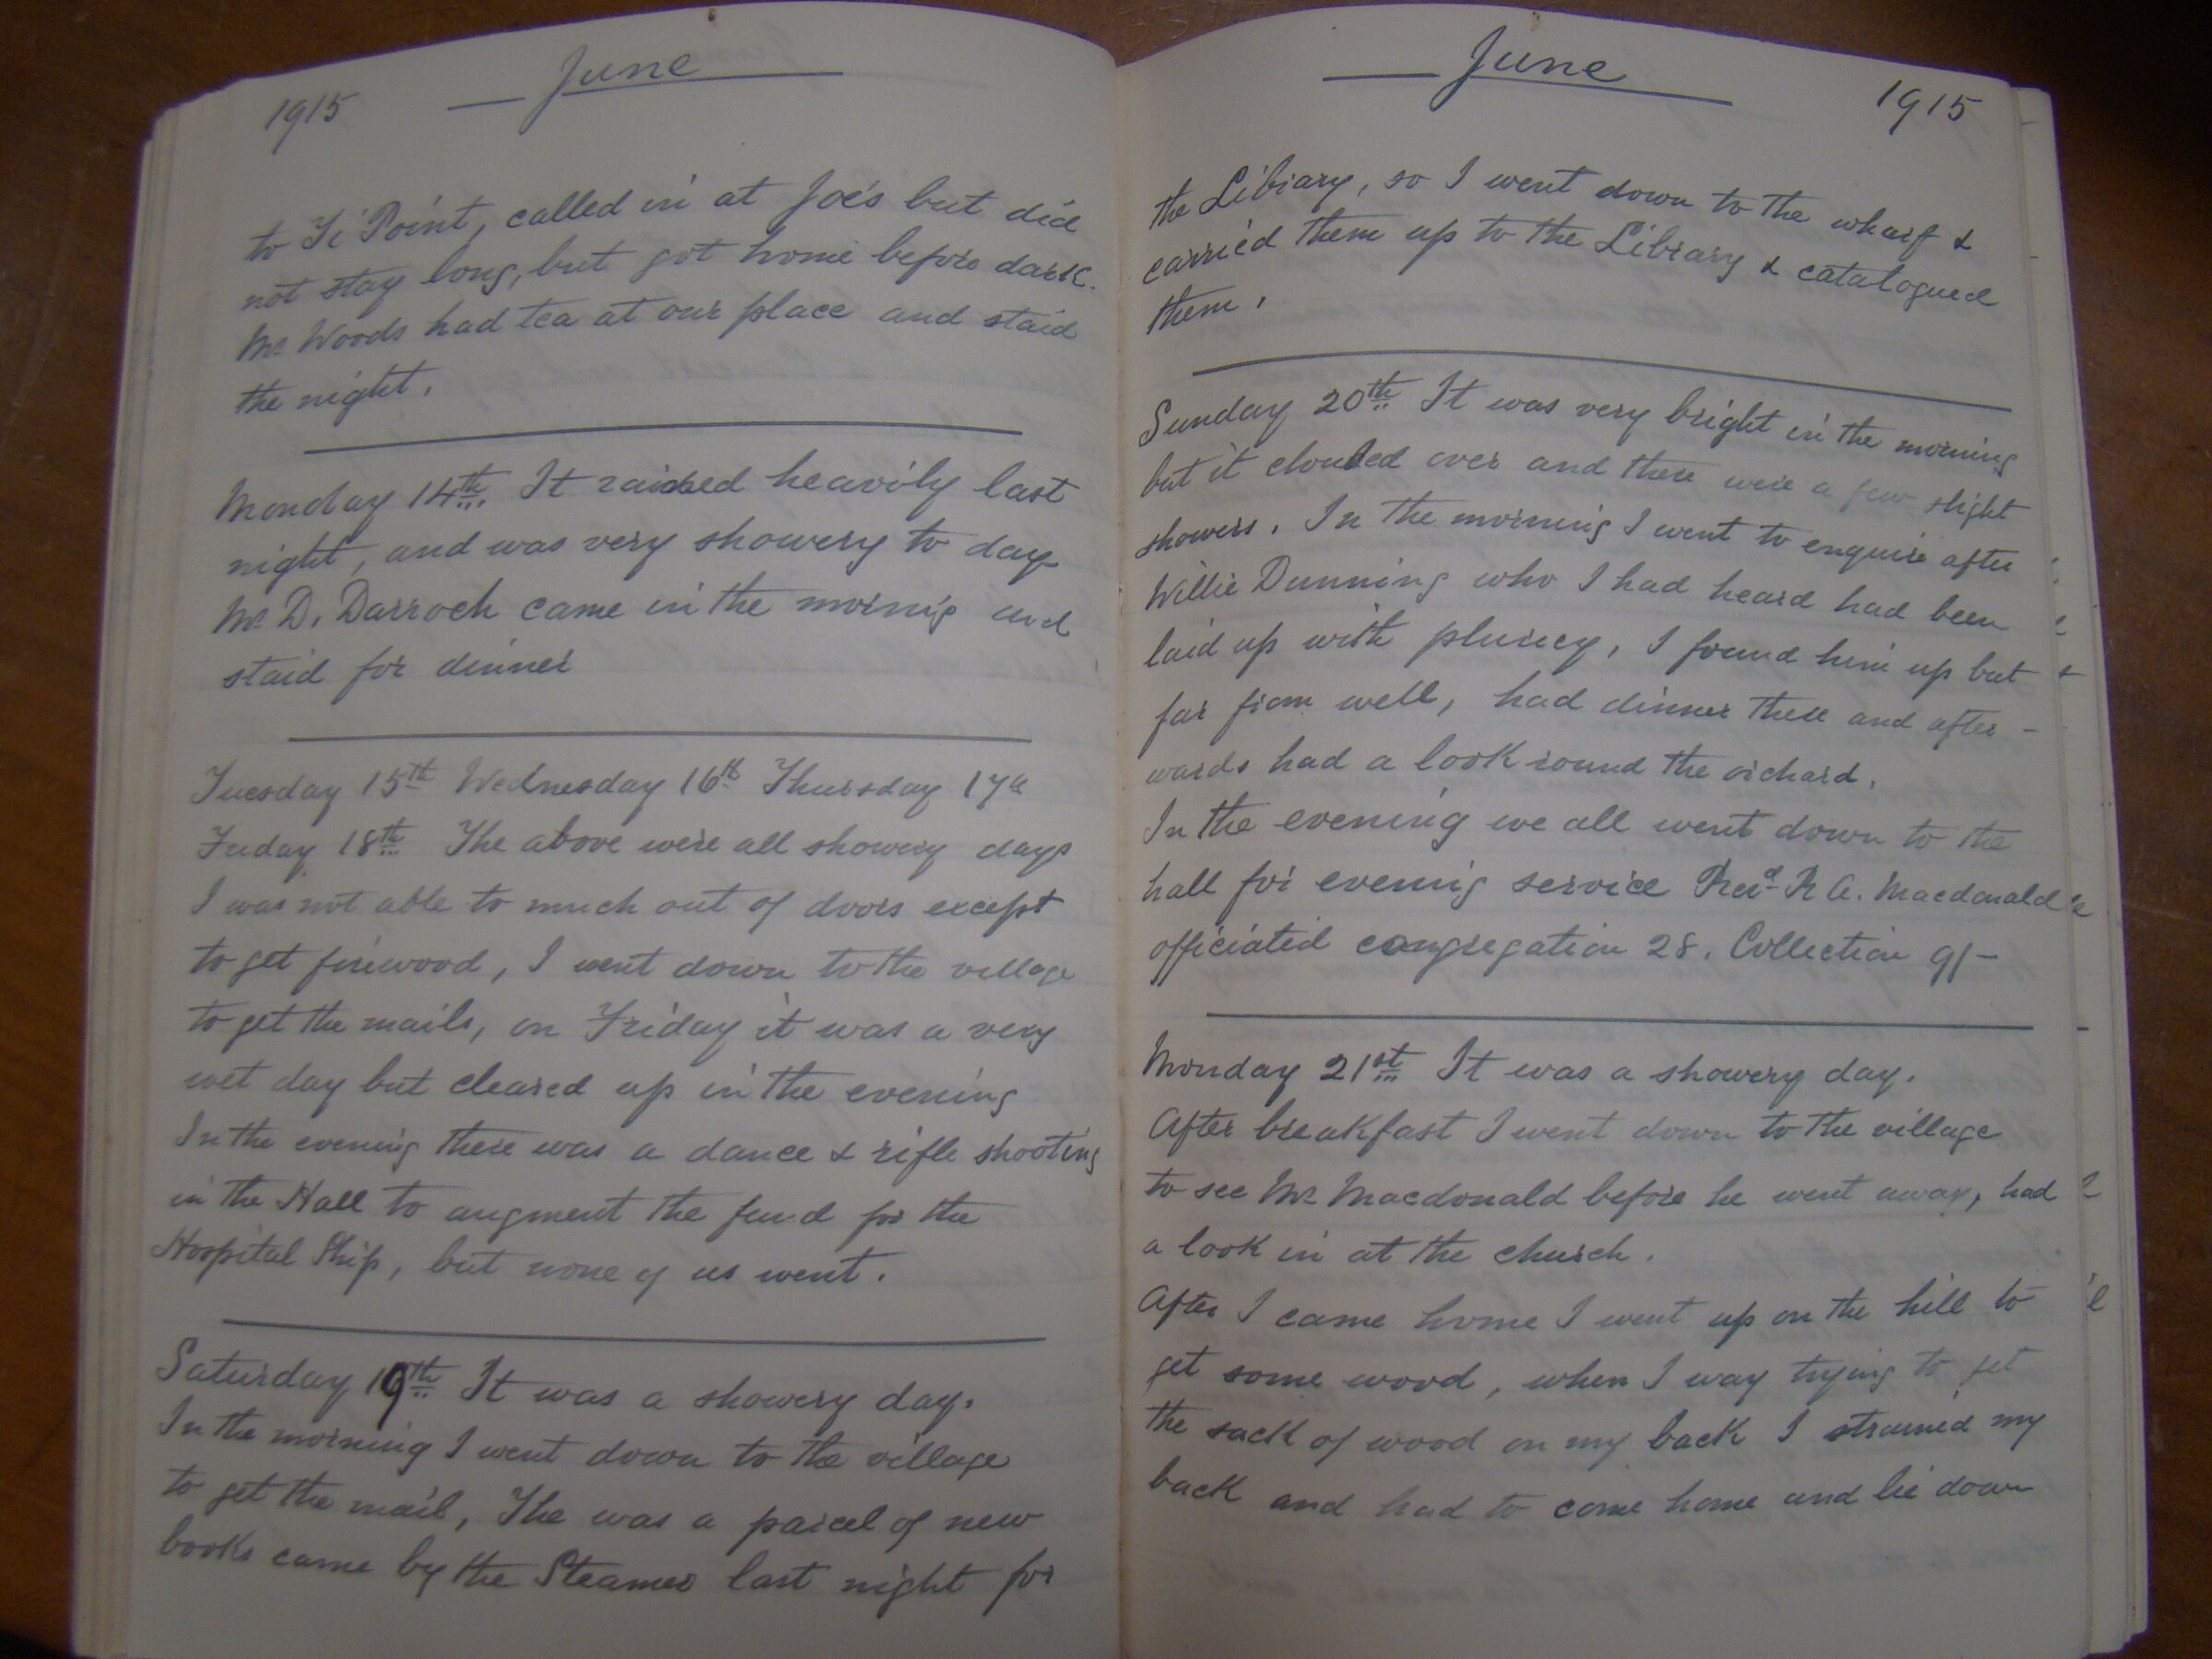 June
1915
to Ti Point, called in at Joe's but did
not stay long, but got home before dark.
Mr Woods had tea at our place and staid
the night.
Monday 14th. It rained heavily last
night, and was very showery to day
Mr D. Darroch came in the morning and
staid for dinner
Tuesday 15th Wednesday 16th Thursday 17th
Friday 18th The above were all showery days
I was not able to much out of doors except
to get firewood, I went down to the village
to get the mails, on Friday it was a very
wet day but cleared up in the evening
In the evening there was a dance & rifle shooting
in the Hall to augment the fund for the
Hospital Ship, but none of us went.
Saturday 19th It was a showery day.
In the morning I went down to the village
to get the mail, The was a parcel of new
books came by the Steamer last night for
June
1915
the Library, so I went down to the wharf &
carried them up to the Library & catalogued
them.
Sunday 20th It was very bright in the morning
but it clouded over and there were a few slight
showers. In the morning I went to enquire after
Willie Dunning who I had heard had been
laid up with pluricy, I found him up but
far from well, had dinner there and after-
wards had a look round the orchard.
In the evening we all went down to the
hall for evening service Revd R A. Macdonald
officiated congregation 28. Collection 9/-
Monday 21st It was a showery day.
After breakfast I went down to the village
to see Mr Macdonald before he went away, had
a look in at the church.
After I came home I went up on the hill to
get some wood, when I way trying to get
the sack of wood on my back I strained my
back and had to come home and lie down